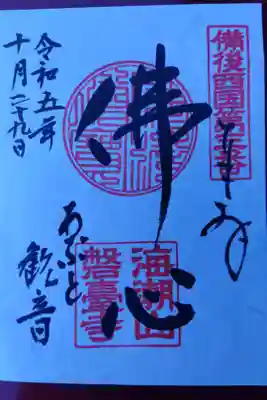 備後西国
奉拝
佛心
海潮山
磐臺寺
あぶと
観音
令和五年
十月二十九日